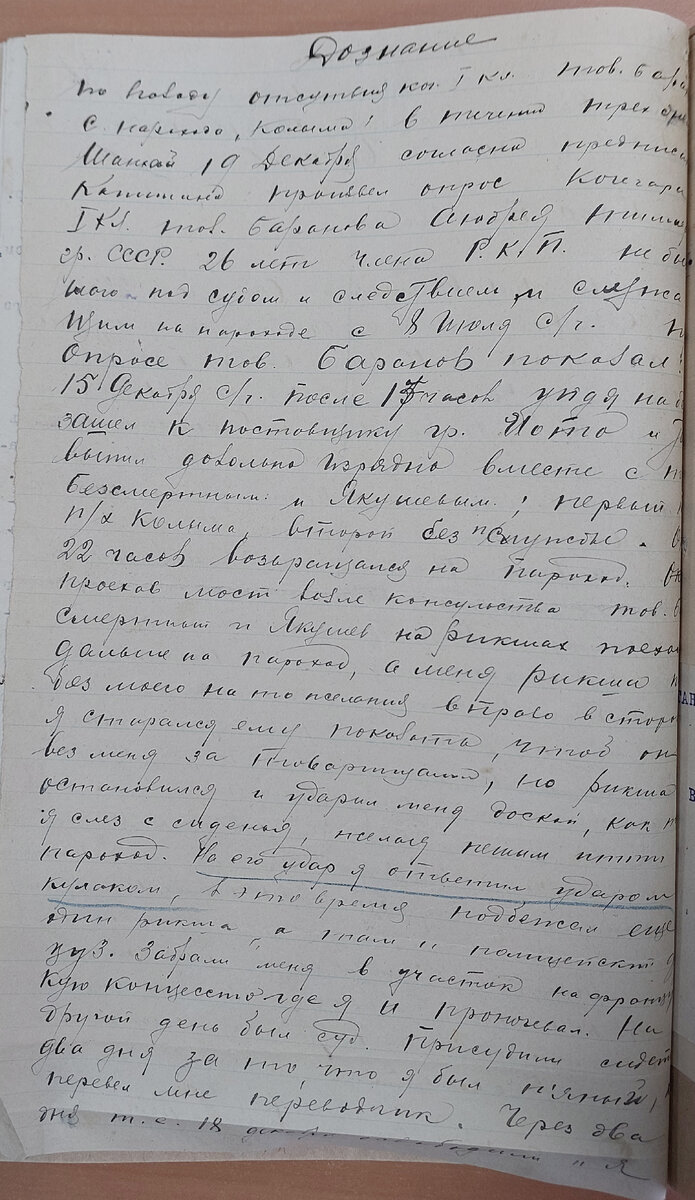 Дознание
по поводу отсутствия коч. I кл. тов. Бара
с парохода „Колыма" в течении трех дн
Шанхай 19 Декабря согласно предписа
Капитана произвел опрос Кочегара
I кл. тов. Баранова Андрея
гр. СССР. 26 лет члена Р.К.П. не бы
шего под судом и следствием и служа
щим на пароходе с 8 Июля с/г.
Опросе тов. Баранов показал:
15 Декабря с/г. после 17 часов уйдя на б
зашел к поставщику гр. Иото и
выпил довольно изрядно вместе с т
Безсмертным и Якушевым, первый
п/х Колыма, второй без службы.
22 часов возвращался на пароход.
проехав мост возле консульства тов. Б
смертный и Якушев на рикшах поеха
дальше на пароход, а меня рикша п
без моего на то желания вправо в сторо
я старался ему показать, чтоб он
вез меня за товарищами, но рикша
остановился и ударил меня доской, как т
я слез с сиденья, желая пешим итти
пароход. На его удар я ответил ударом
кулаком, в это время подбежал еще
дин рикша, а там и полицейский
цуз. Забрали меня в участок на францу
кую концессию где я и проночевал. На
другой день был суд. Присудили сидет
два дня за то, что я был п'яный,
перевел мне переводчик. Через два
дня т.е. 18 декабря освободили и я